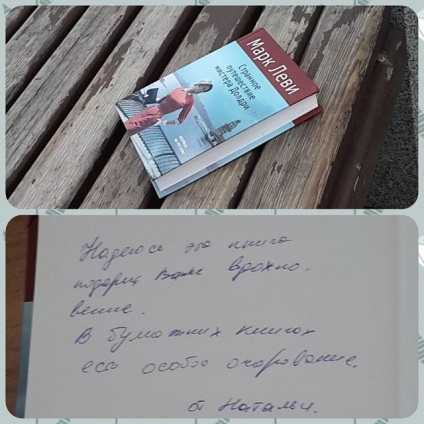 Марк Леви
Странное
путешествие
мистера Долдри
Надеюсь эта книга
подарит Вам вдохно-
вение.
В бумажних книгах
есть особое очарование.
от Натальи.